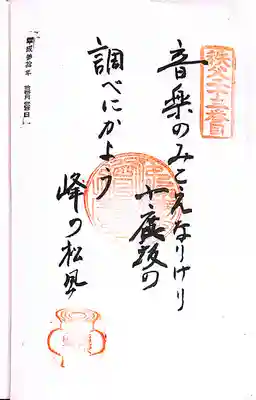 秩父二十三番
音楽のみこえなりけり
小鹿坂の
調べにかよう
峰の松風
平成